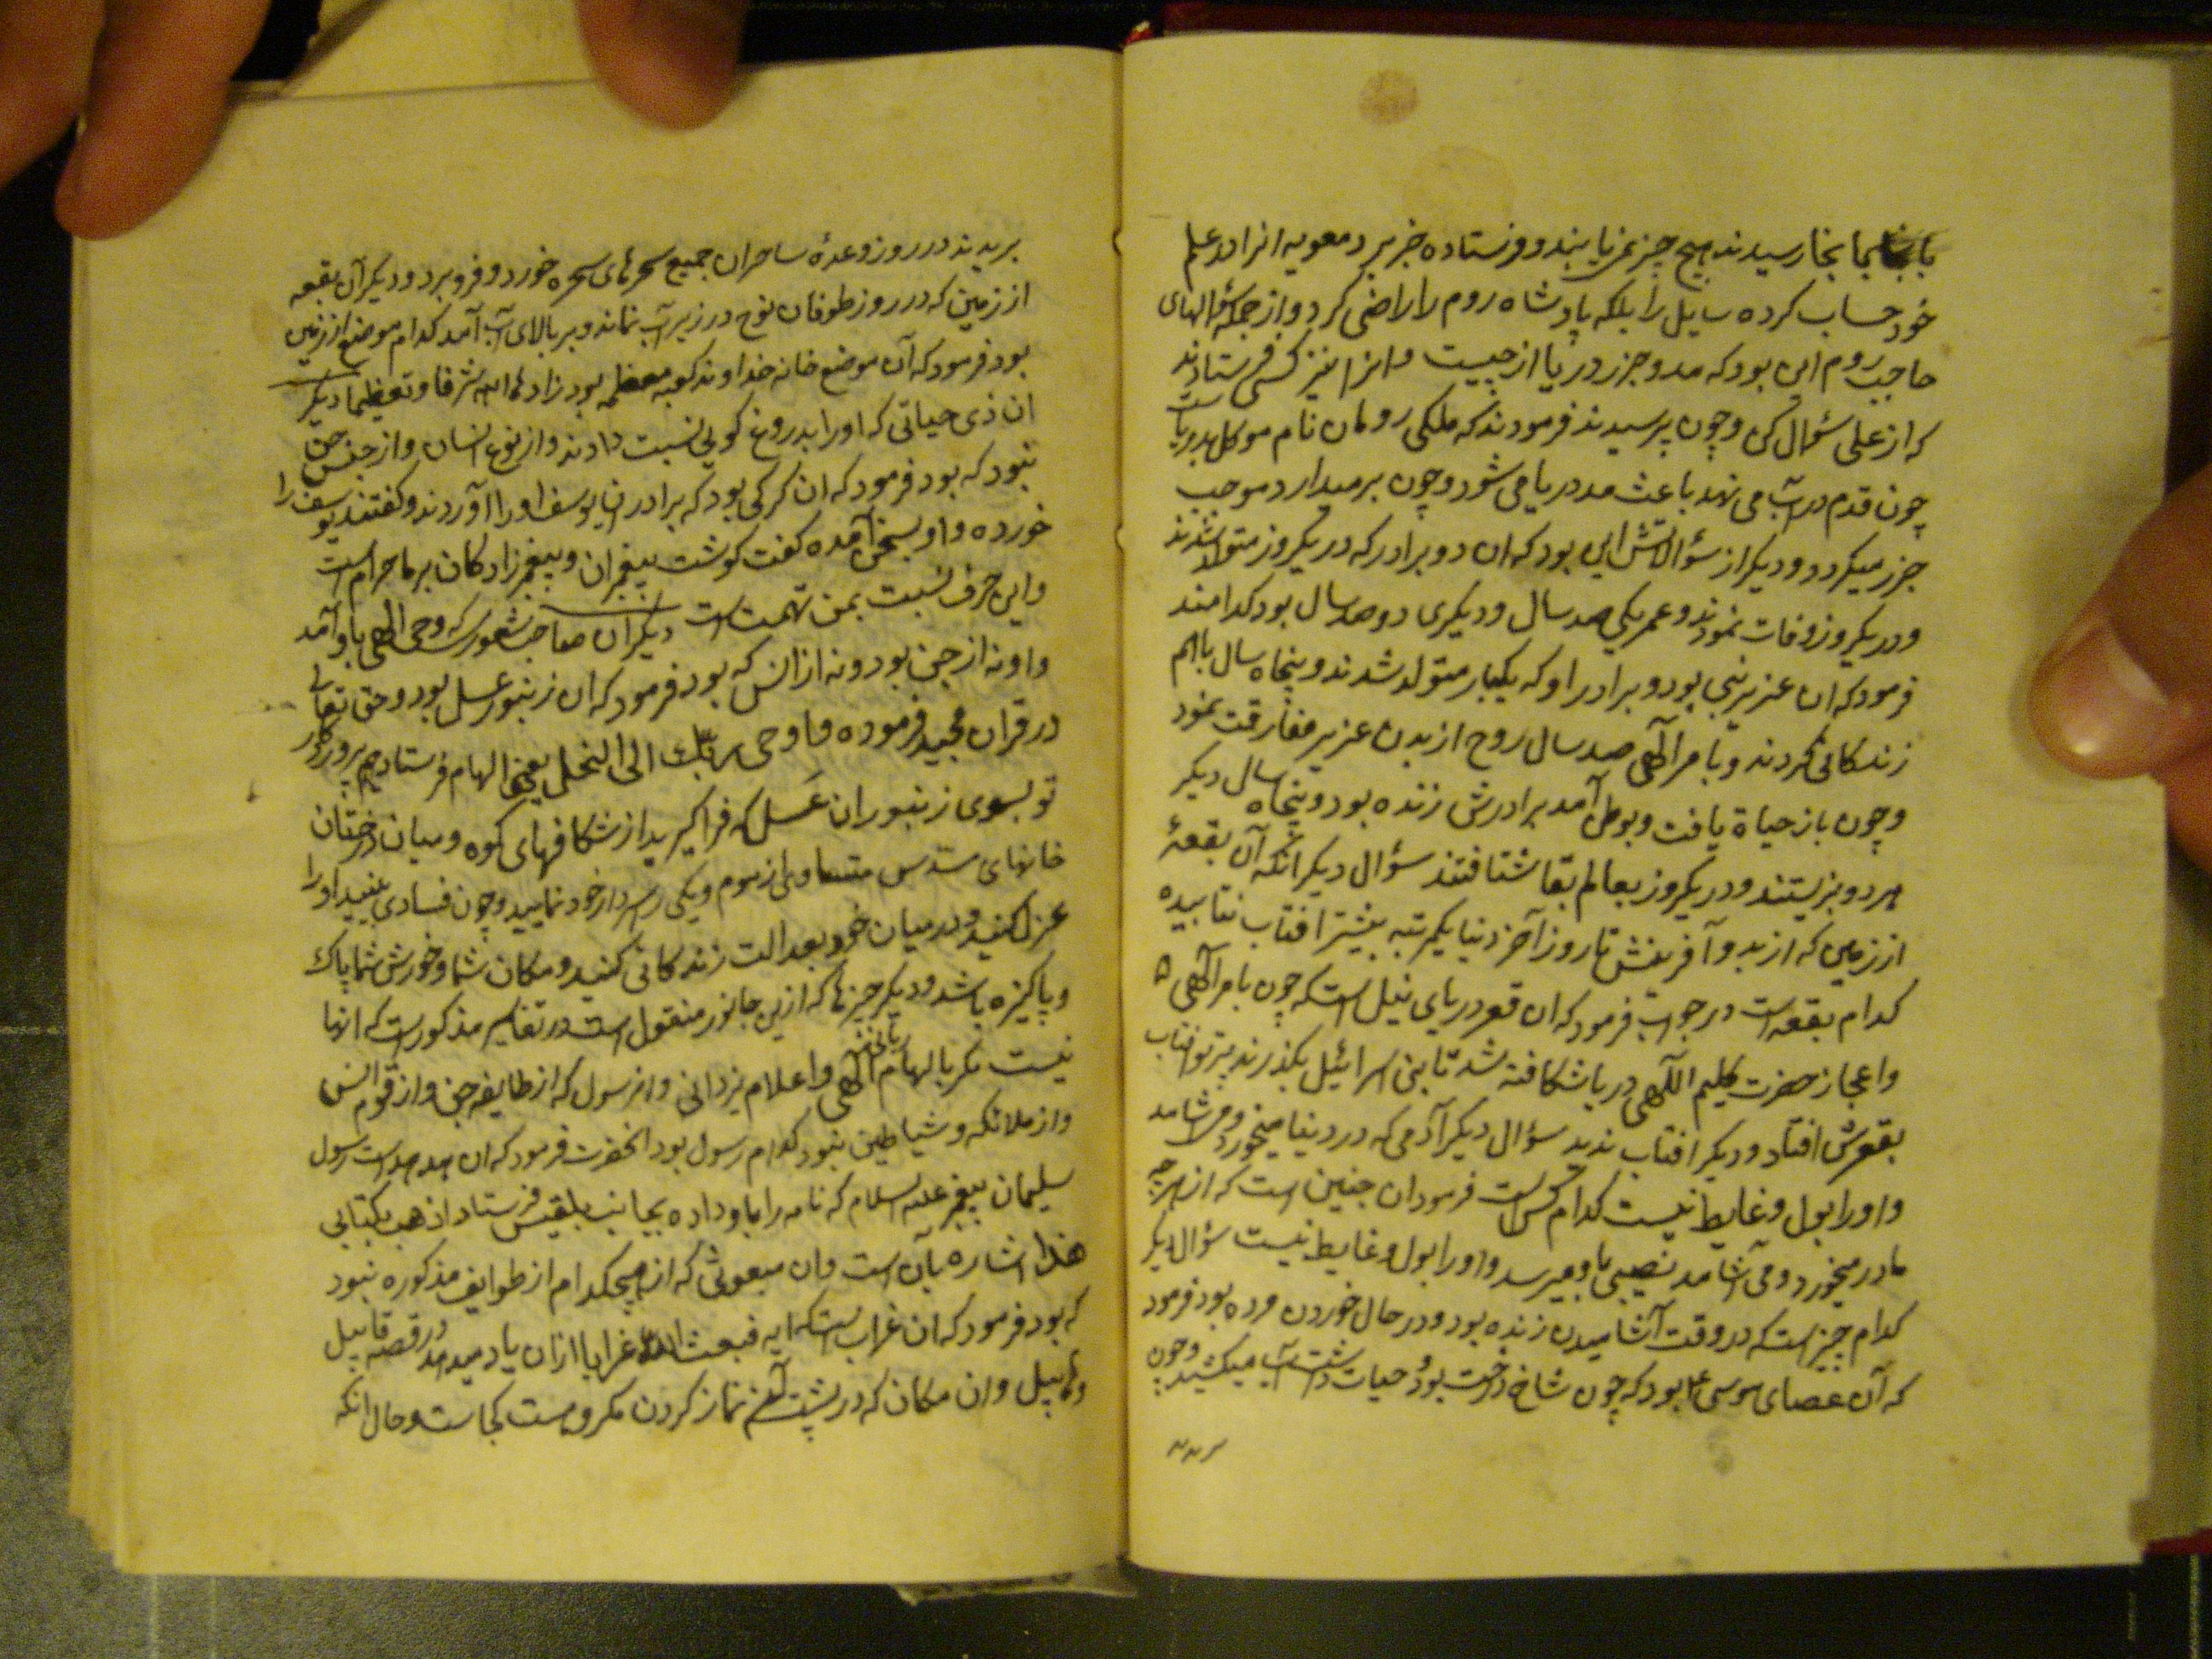 بانجا رسیدند هیچ چیز نمی یابند و فرستاده خبر برد معویه انرا در علم
خود حساب کرده سایل را بلکه پادشاه روم را راضی کرد و از جمله سؤالهای
حاجب روم این بود که مد و جزر دریا از چیست و انرا نیز کسی فرستادند
که از علی سؤال کن و چون پرسیدند فرمودند که ملکی رومان نام موکل بدریاست
چون قدم در آب می نهد باعث مد دریا می شود و چون بر میدارد موجب
جزر میکردد و دیکر از سؤالاتش این بود که ان دو برادر که در یکروز متولد شدند
و در یکروز وفات نمودند و عمر یکی صد سال و دیکری دو صد سال بود کدامند
فرمود که ان عزیر نبی بود و برادر او که یکبار متولد شدند و پنجاه سال باهم
زندکانی کردند و بامر آلهی صد سال روح از بدن عزیر مفارقت نمود
و چون باز حیاة یافت و بوطن آمد برادرش زنده بود و پنجاه سال دیکر
هر دو بزیستند و در یکروز بعالم بقا شتافتند سؤال دیکر انکه آن بقعهٔ
از زمین که از بدو آفرینش تا روز آخر دنیا یکمرتبه بیشتر افتاب نتابیده
کدام بقعه است در جواب فرمود که ان قعر دریای نیل است که چون بامر آلهی
و اعجاز حضرت کلیم اللهی دریا شکافته شد تا بنی اسرائیل بکذرند پرتو افتاب
بقعرش افتاد و دیکر افتاب ندید سؤال دیکر آدمی که در دنیا میخورد و می اشامد
و او را بول و غایط نیست کدام کس است فرمود ان جنین است که از هر چه
مادر میخورد و می آشامد نصیبی باو میرسد و او را بول و غایط نیست سؤال دیکر
کدام چیز است که در وقت آشامیدن زنده بود و در حال خوردن مرده بود فرمود
که آن عصای موسی ع بود که چون شاخ درخت بود و حیات داشت آب میکشید و چون
بریدند در روز وعدهٔ ساحران جمیع سحرهای سحره خورد و فرو برد و دیکر آن بقعه
از زمین که در روز طوفان نوح در زیر آب نماند و بر بالای آب آمد کدام موضع از زمین
بود فرمود که آن موضع خانه خداوند کعبه معظمه بود زادها الله شرفا و تعظیما دیکر
ان ذی حیاتی که او را بدروغ کویی نسبت دادند و از نوع انسان و از جنس جن
نبود که بود فرمود که ان کرکی بود که برادران یوسف او را آوردند و کفتند یوسف را
خورده و او بسخن آمده کفت کوشت پیغمبران و پیغمبرزادکان بر ما حرام است
و این حرف نسبت بمن تهمت است دیکر ان صاحب شعور که وحی الهی باو آمد
و او نه از جن بود و نه از انس که بود فرمود که ان زنبور عسل بود و حق تعالی
در قران مجید فرموده و اوحی ربّک الی النحل یعنی الهام فرستاد پروردکار
تو بسوی زنبوران عَسل که فرا کیرید از شکافهای کوه و میان درختان
خانهای مسدس متساوی از موم و یکی را سردار خود نمایید و چون فسادی بینید او را
عزل کنید و در میان خود بعدالت زندکانی کنید و مکان شما و خورش شما پاک
و پاکیزه باشد و دیکر چیزها که ازین جانور منقول است و در تفاسیر مذکور است که انها
نیست مکر بالهام آلهی ربانی و اعلام یزدانی و ان رسول که از طایفه جن و از قوم انس
و از ملائکه و شیاطین نبود کدام رسول بود انحضرت فرمود که ان هدهد است رسول
سلیمان پیغمبر علیه السلام که نامه را باو داده بجانب بلقیس فرستاد اذهب بکتابی
هذا اشاره بآن است و ان مبعوثی که از هیچکدام از طوایف مذکوره نبود
که بود فرمود که ان غراب است که ایه فبعث الله غرابا ازان یاد میدهد در قصه قابیل
و هابیل و ان مکان که در پشت نماز کردن مکروهست کجاست و حال انکه